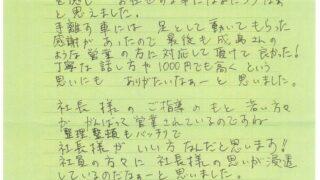 と思えました。
手離す車には 足として動いてもらった
感謝があったので最後も成島さん
のような営業の方に対応して頂けて良かった!
丁寧な話し方や1000円でも高くという
思いにも ありがたいなぁーと思いました。
社長様の ご指導の もと 若い方々
が がんばって営業されているのですね
整理整頓もバッチリで
社長様が いい方なんだと思います!
社員の方々に 社長様の思いが浸透
しているのだなぁーと思いました。